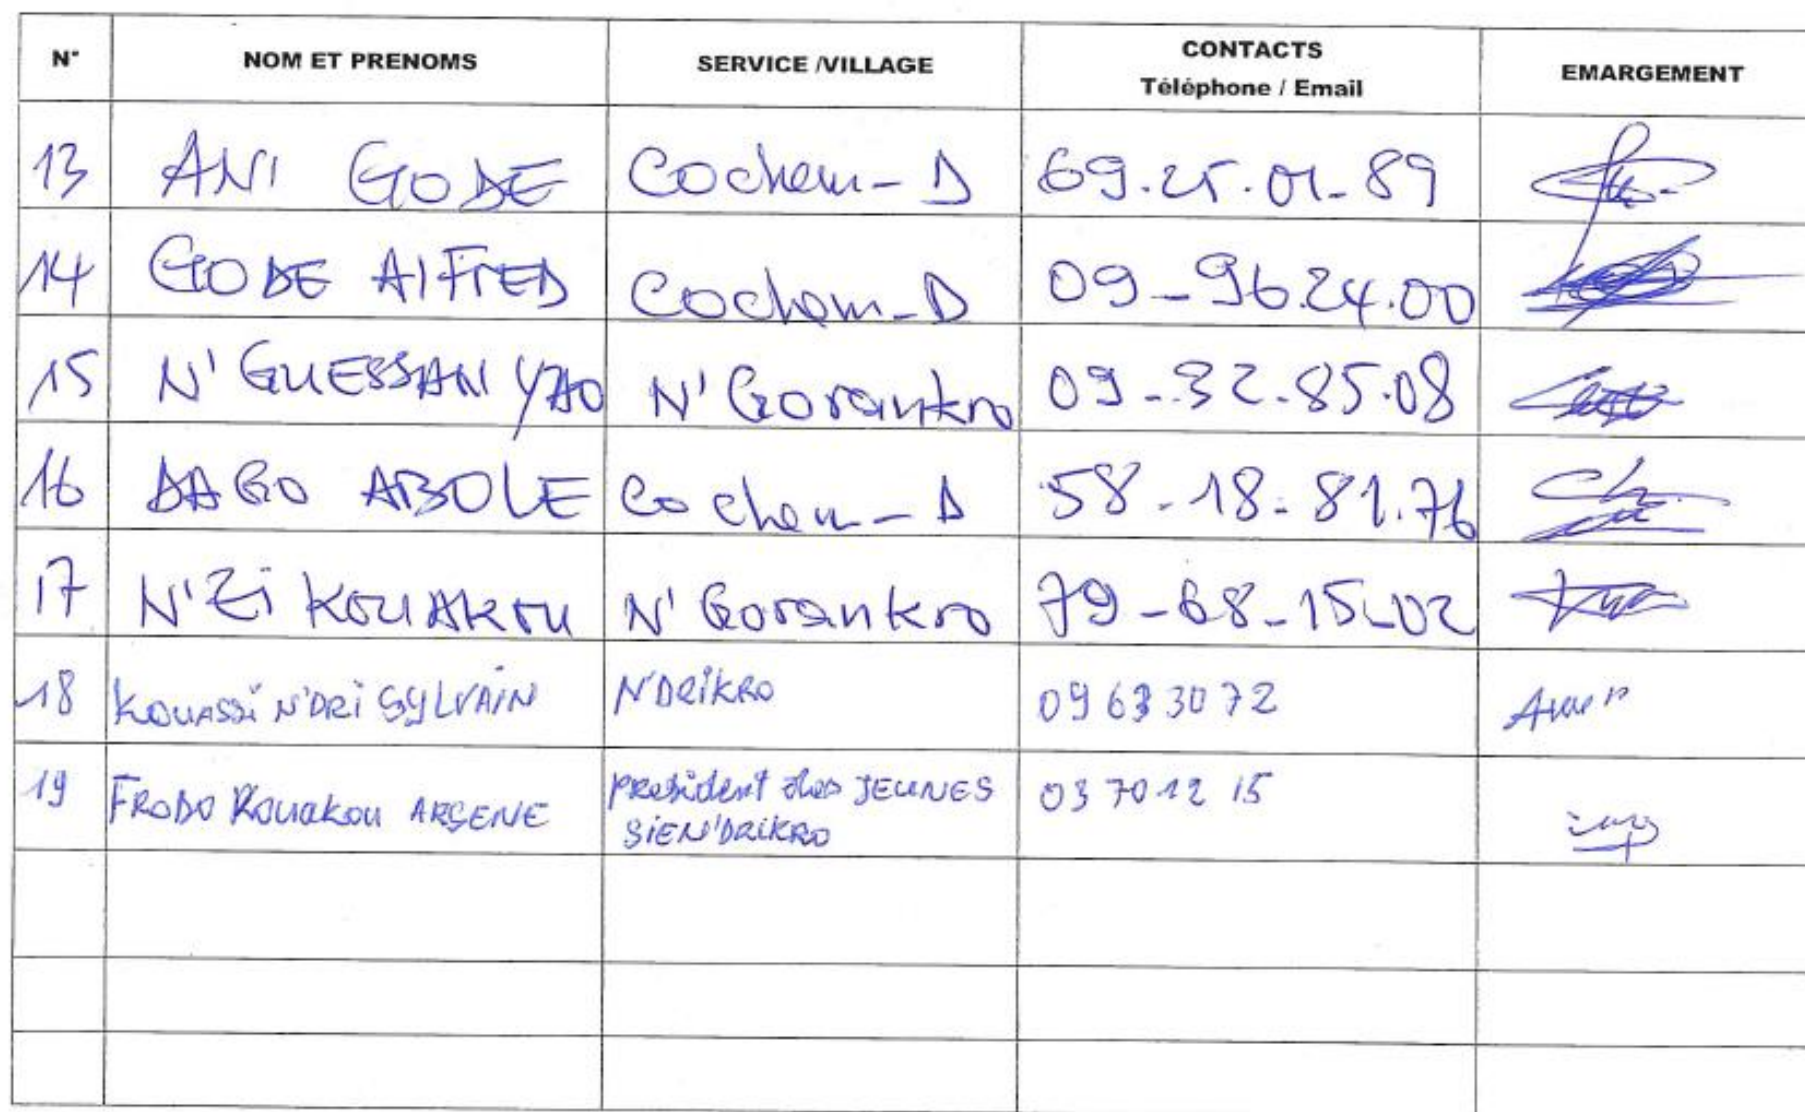 N° NOM ET PRENOMS SERVICE /VILLAGE CONTACTS Téléphone / Email EMARGEMENT
13 ANI GODE Cochem-D 69.25.01-89
14 GODE AlFRED Cochem-D 09-96.24.00
15 N'GUESSAN YAO N'Gorankro 09-32-85.08
16 DAGO ABOLE Cochem-D 58-18-81.76
17 N'Zi KOUAKOU N'Gorankro 79-68-15-02
18 KOUASSi N'DRi SYLVAIN N'DRiKRO 09 63 30 72
19 FRODO KOUAKOU ARSENE président des JEUNES SiEN'DRiKRO 03 70 12 15